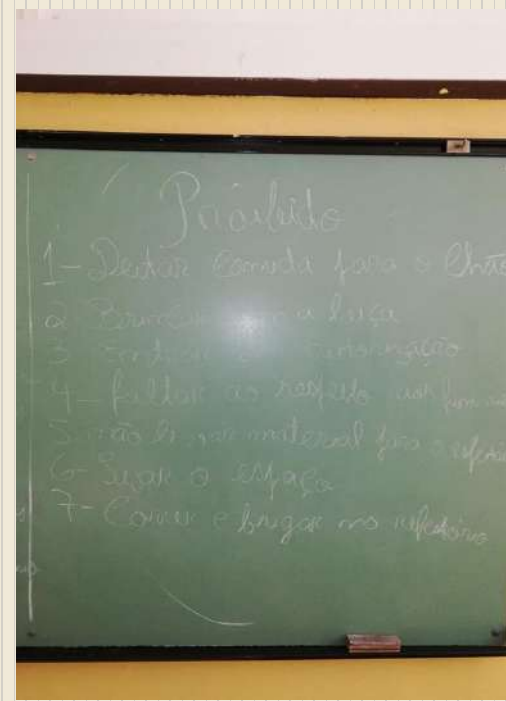 Proibido
1- Deitar comida para o Chão
2 Brincar com a loiça
3 autorização
4- faltar ao respeito aos
5 não material para o
6- Sujar o espaço
7- Correr e brigar no refeitório